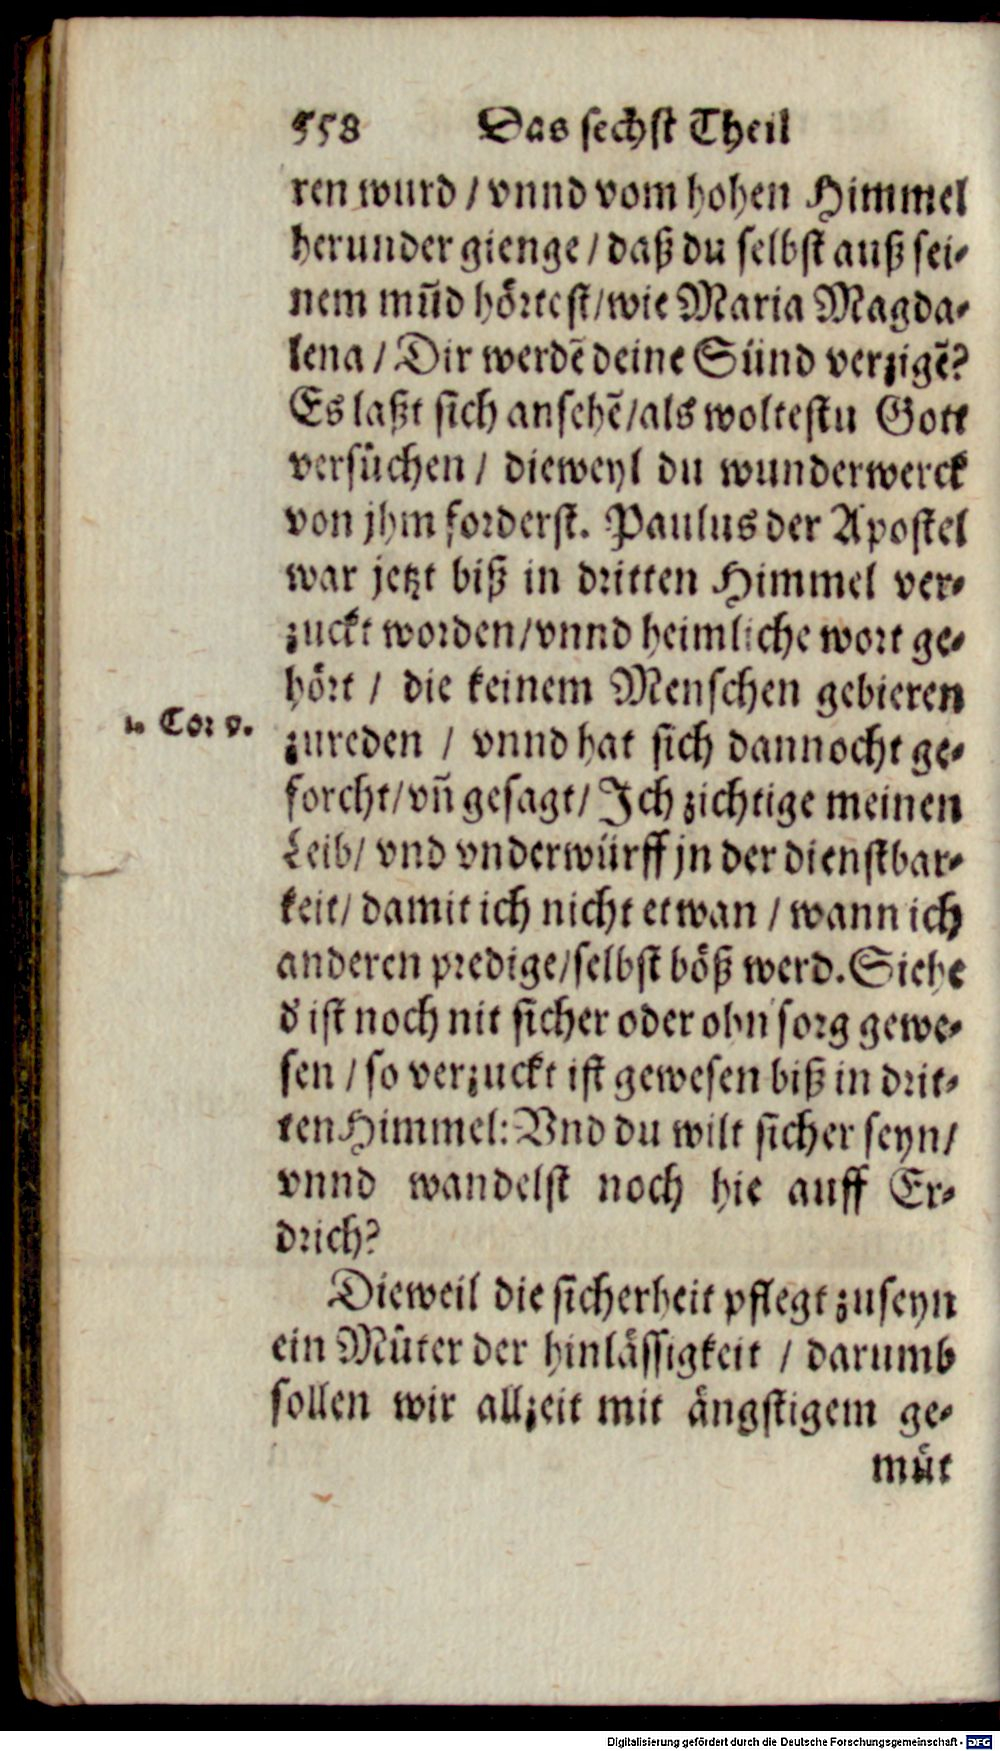 558 Das sechst Theil
ren wurd / vnnd vom hohen Himmel
herunder gienge / daß du selbst auß sei-
nem mūd hörtest/wie Maria Magda-
lena / Dir werdē deine Sünd verzigē?
Es laßt sich ansehē/als woltestu Gott
versuͤchen / dieweyl du wunderwerck
von jhm forderst. Paulus der Apostel
war jetzt biß in dritten Himmel ver-
zuckt worden/vnnd heimliche wort ge-
hört / die keinem Menschen gebieren
1. Cor 9.
zureden / vnnd hat sich dannocht ge-
forcht/vñ gesagt/ Ich zichtige meinen
Leib/ vnd vnderwürff jn der dienstbar-
keit/ damit ich nicht etwan / wann ich
anderen predige/selbst böß werd. Siehe
d' ist noch nit sicher oder ohn sorg gewe-
sen / so verzuckt ist gewesen biß in drit-
ten Himmel: Vnd du wilt sicher seyn/
vnnd wandelst noch hie auff Er-
drich?
Dieweil die sicherheit pflegt zuseyn
ein Muͤter der hinlässigkeit / darumb
sollen wir allzeit mit ängstigem ge-
muͤt
Digitalisierung gefördert durch die Deutsche Forschungsgemeinschaft - DFG